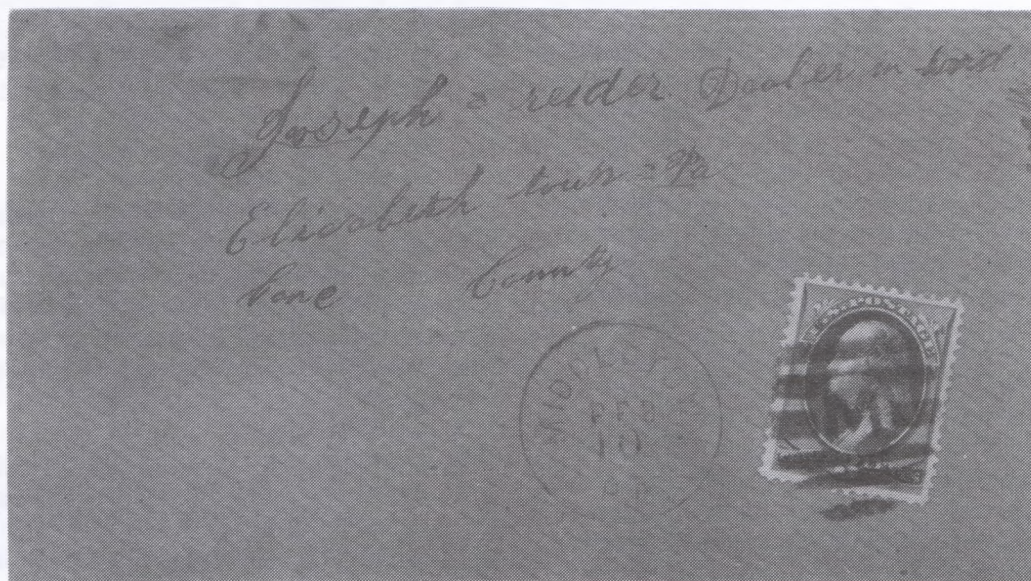 Joseph = reider Dealer in
Elisabeth town = Pa
Lanc County
MIDDLETOWN
FEB
10
PA
U.S. POSTAGE